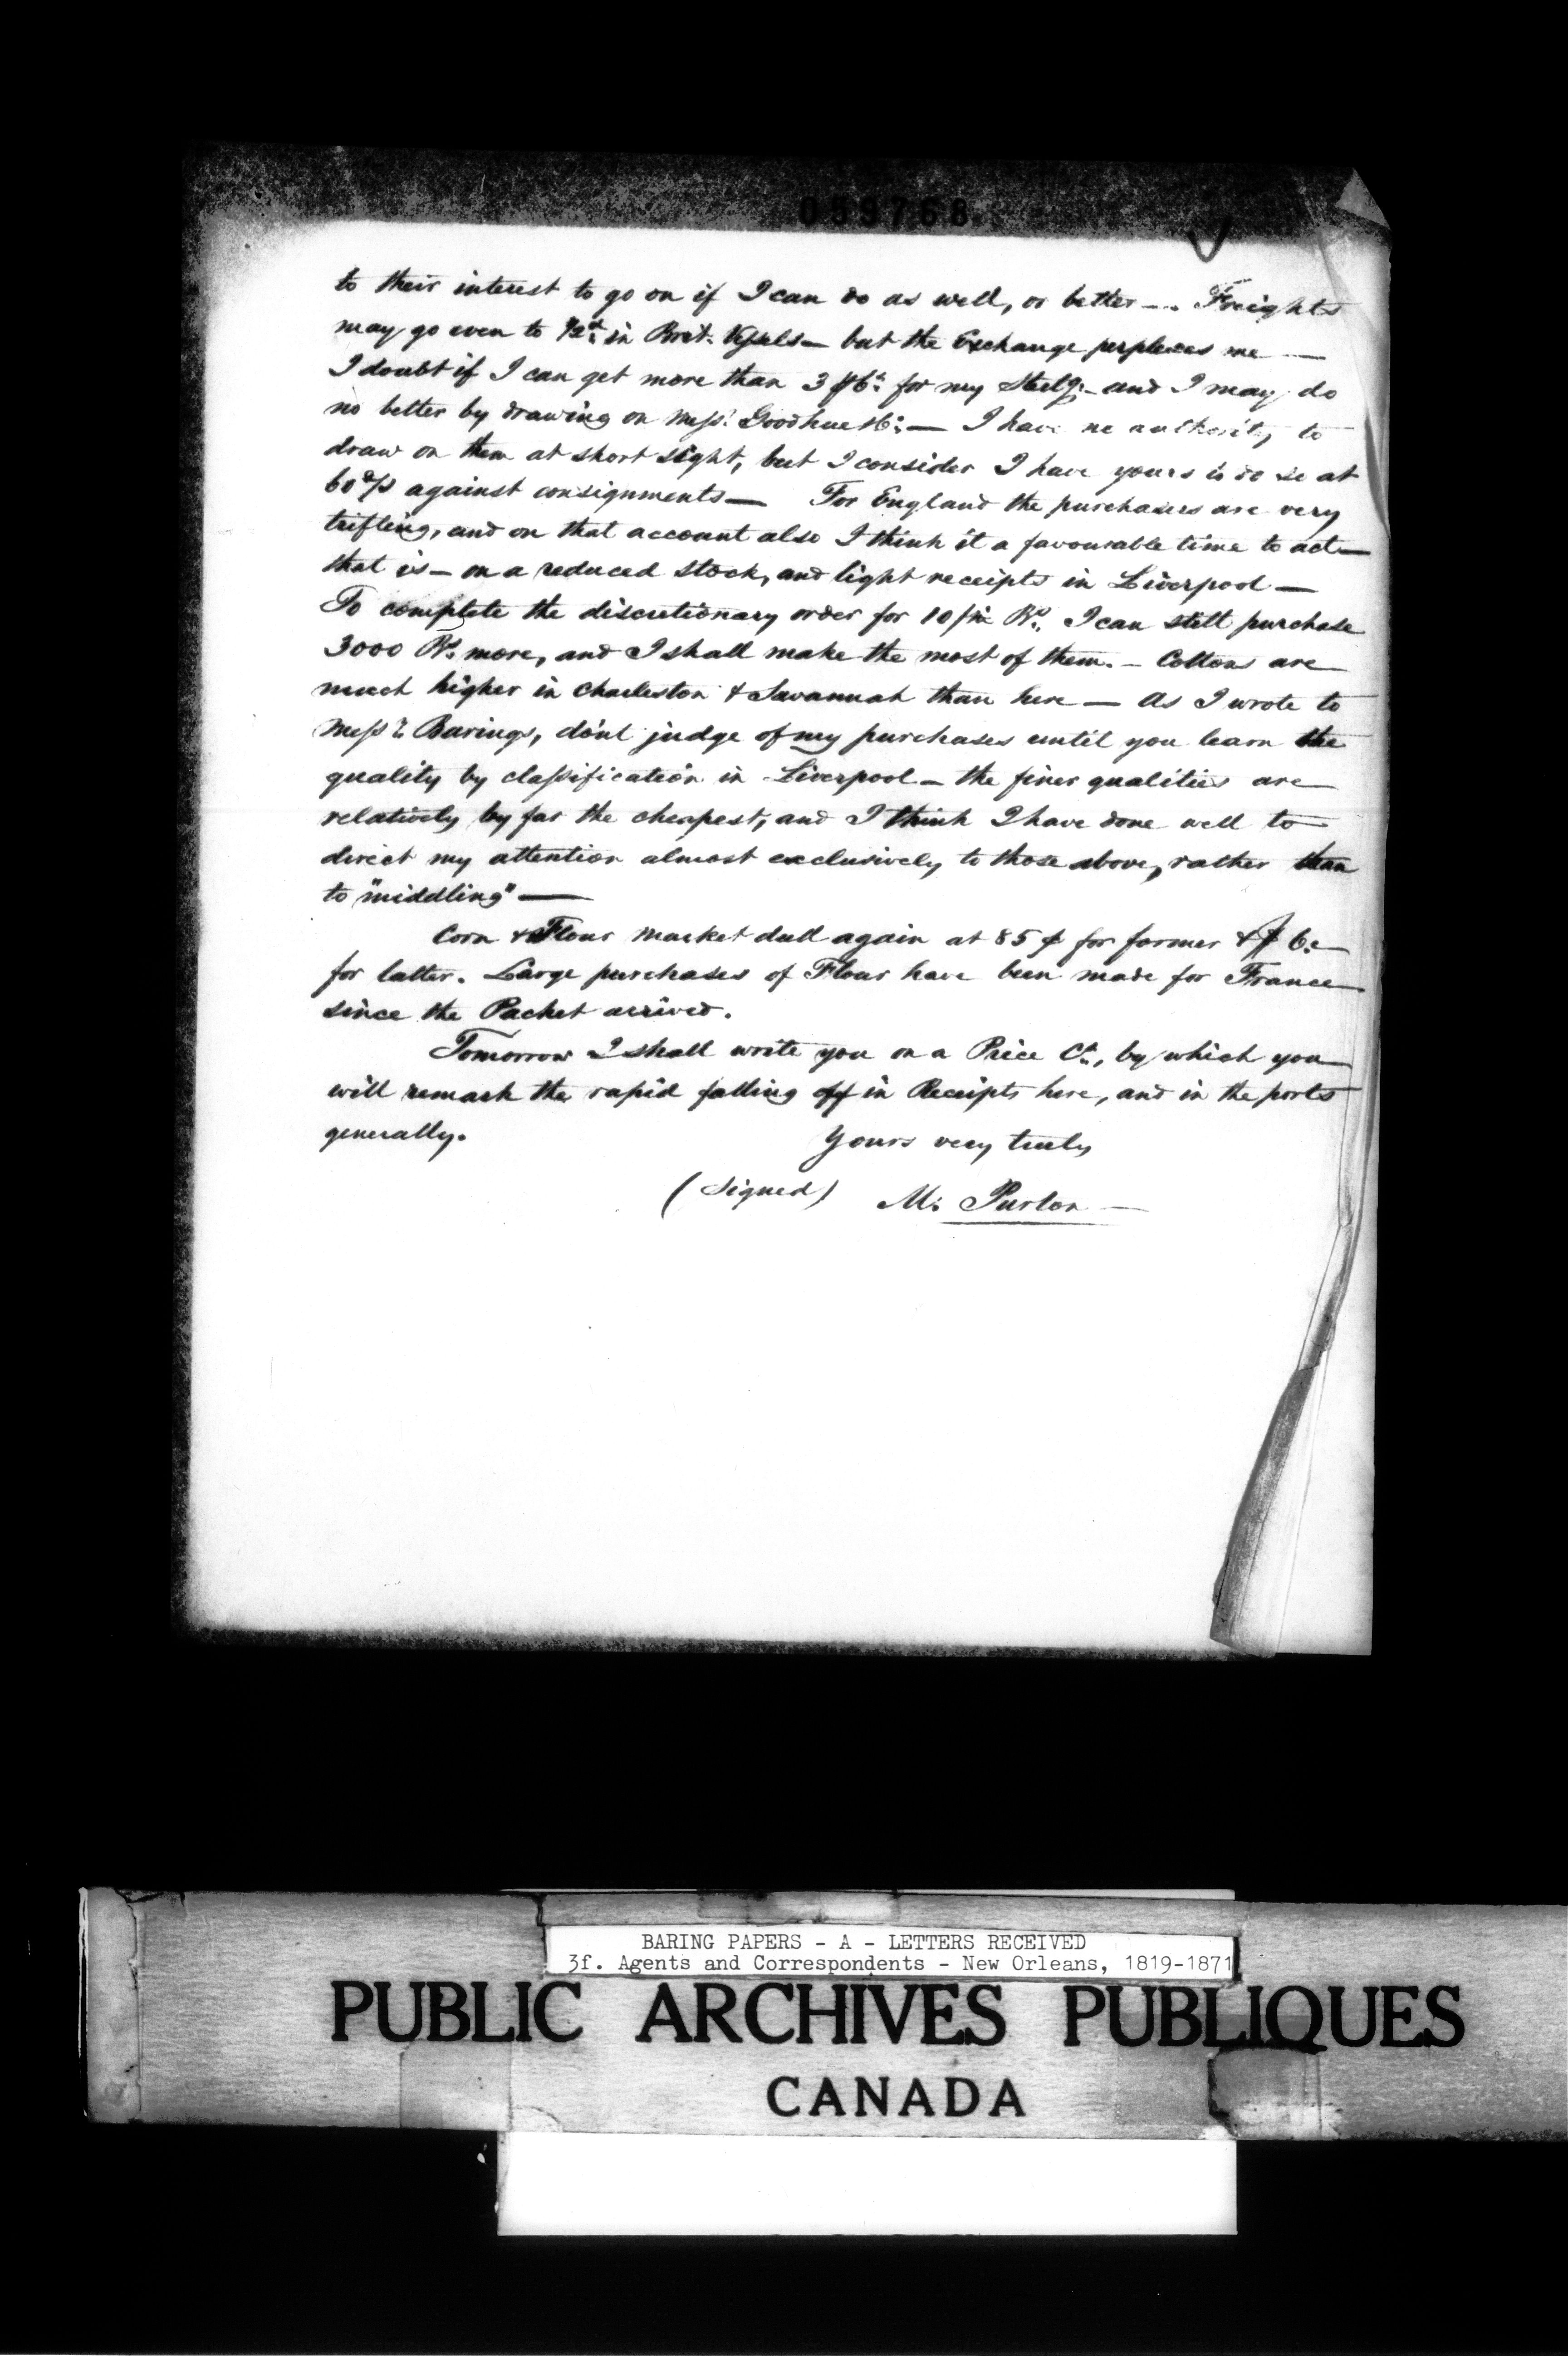 059768
to their interest to go on if I can do as well, or better —. Freights
may go even to 1/2d. in Brit. Vessels — but the Exchange perplexes me —
I doubt if I can get more than 3 for my Sterlg. — and I may do
no better by drawing on Messrs. Goodhue & Co. — I have no authority to
draw on them at short sight, but I consider I have yours to do so at
60 d/s against consignments — For England the purchasers are very
trifling, and on that account also I think it a favourable time to act —
that is — on a reduced stock, and light receipts in Liverpool —
To complete the discretionary order for 10/m Bs. I can still purchase
3000 Bs. more, and I shall make the most of them. — Cottons are
much higher in Charleston & Savannah than here — As I wrote to
Messrs. Barings, dont judge of my purchases until you learn the
quality by classification in Liverpool — the finer qualities are
relatively by far the cheapest, and I think I have done well to
direct my attention almost exclusively to those above, rather than
to "middling" —
Corn & Flour market dull again at 85 ¢ for former & $ 6.
for latter. Large purchases of Flour have been made for France
since the Packet arrived.
Tomorrow I shall write you on a Price Ct., by which you
will remark the rapid falling off in Receipts here, and in the ports
generally.
Yours very truly
(Signed) M.
BARING PAPERS - A - LETTERS RECEIVED
3f. Agents and Correspondents - New Orleans, 1819-1871
PUBLIC ARCHIVES PUBLIQUES
CANADA